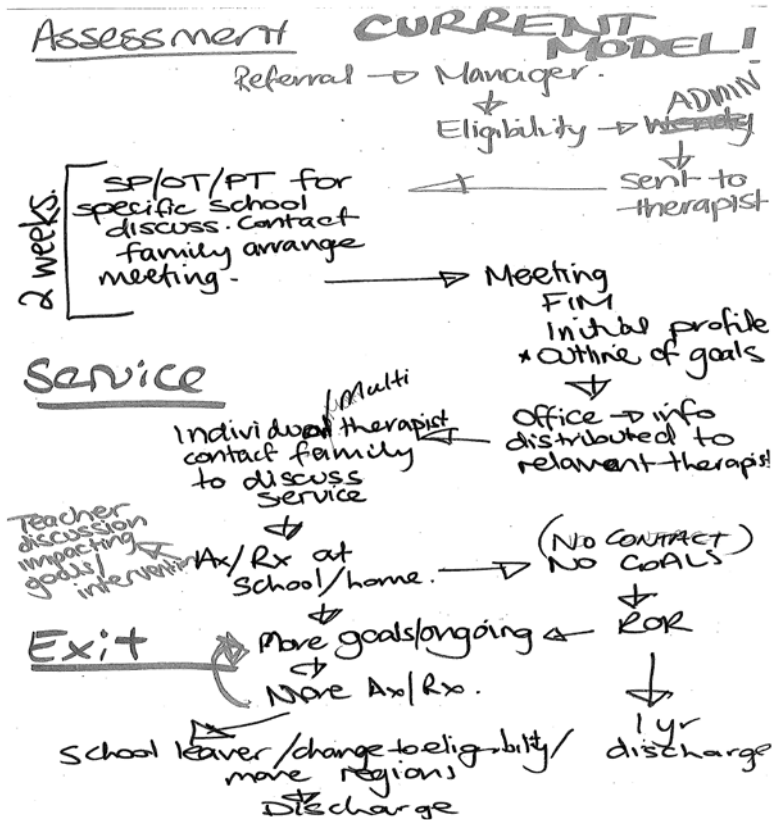 Assessment
CURRENT
MODEL!
Referral → Manager.
ADMIN
Eligibility →
sent to
therapist
2 weeks.
SP/OT/PT for
specific school
discuss. Contact
family arrange
meeting.
Meeting
FIM
Initial profile
* outline of goals
Service
Office → info
distributed to
relavant therapist
/Multi
Individual therapist
contact family
to discuss
service
Teacher
discussion
impacting
goals/
intervention
Ax/Rx at
school/home.
(NO CONTACT)
NO GOALS
ROR
Exit
More goals/ongoing
More Ax/Rx.
1 yr
discharge
School leaver/change to eligibility/
move regions
Discharge